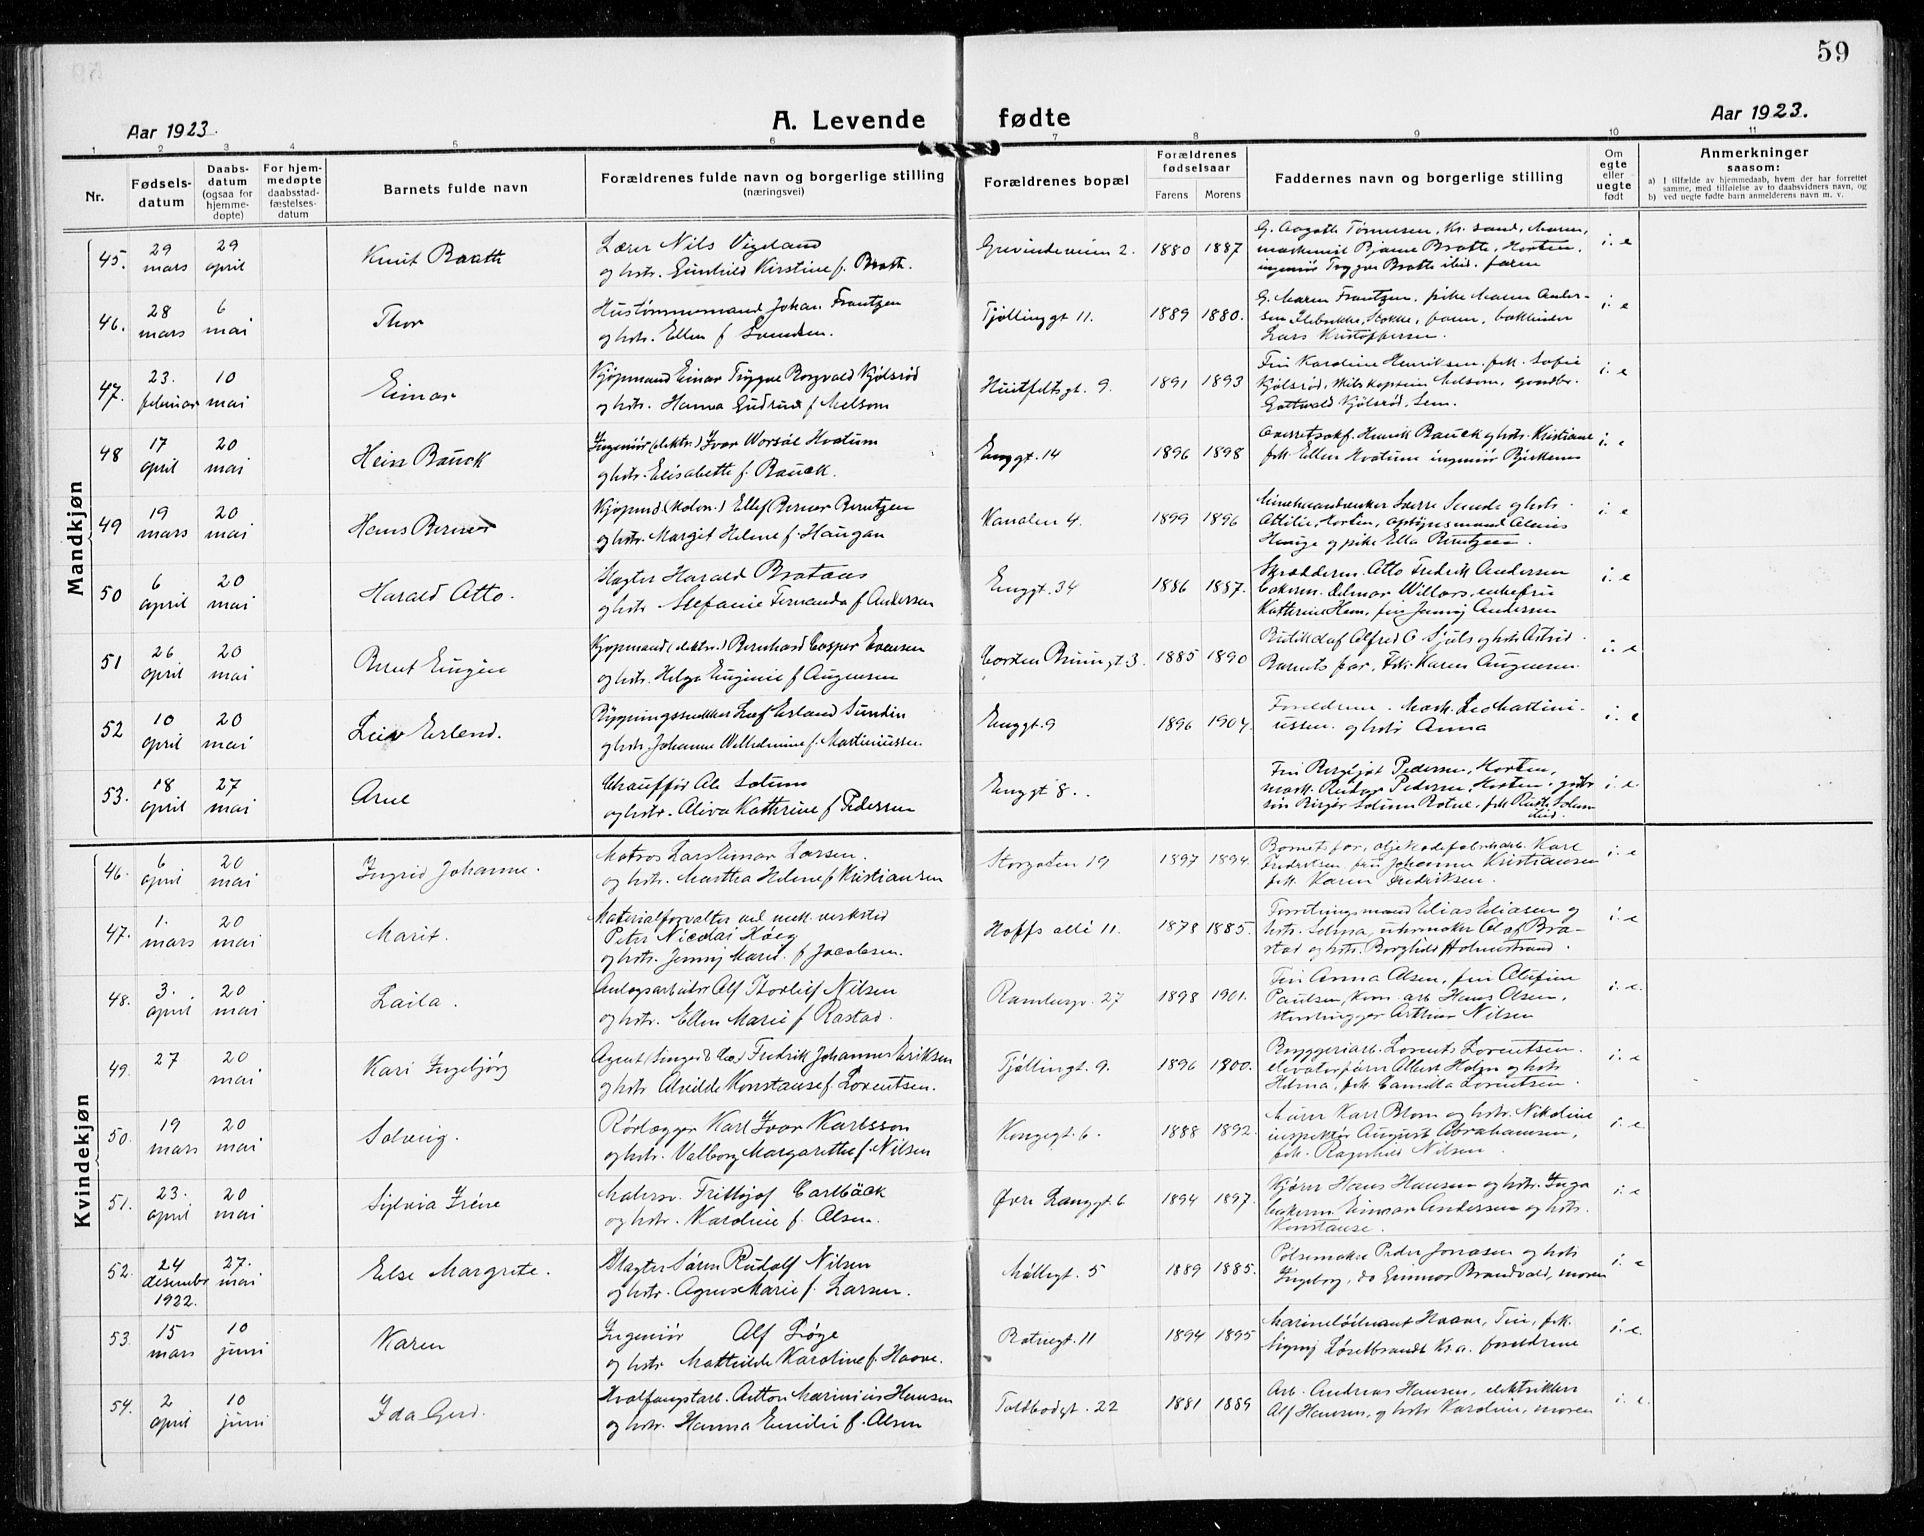 59
Aar 1923.
A. Levende fødte
Aar 1923.
1 2 3 4 5 6 7 8 9 10 11
Nr.
Fødsels-
datum
Daabs-
datum
(ogsaa for
hjemme-
døpte)
For hjem-
medøpte
daabsstad-
fæstelses-
datum
Barnets fulde navn
Forældrenes fulde navn og borgerlige stilling
(næringsvei)
Forældrenes bopæl
Forældrenes
fødselsaar
Farens Morens
Faddernes navn og borgerlige stilling
Om
egte
eller
uegte
født
Anmerkninger
saasom:
a) I tilfælde av hjemmedaab, hvem der har forrettet
samme, med tilføielse av to daabsvidners navn, og
b) ved uegte fødte barn anmelderens navn m. v.
Mandkjøn
45. 29 mars 29 april Knut Braath
Lærer Nils Vigeland
og hstr. Gunhild Kirstine f. Brath.
Grevindeveien 2. 1880 1887
ingeniør Trygve Bratte ibid. faren
i. e
46. 28 mars 6 mai Thor
Hustømmermand Johan Frantzen
og hstr. Ellen f Svendsen.
Tjøllinggt 11. 1889 1880.
G. Maren Frantzen, pike Maren Ander-
Lars Kristoffersen.
i. e
47. 23. februar 10 mai Einar
Kjøpmand Einar Trygve Rogvald Kjølsrød
og hstr. Hanna Gudrun f Melsom
Huitfeltsgt. 9. 1891 1893
Fru Karoline Henriksen, frk. Sofie
Kjølsrød, skibskaptein Melsom, gaardbr.
Gottwald Kjølsrød, Sem.
i. e
48 17 april 20 mai Hein Bauck
Ingeniør (elektr.) Ivar Worsøe Hvatum
og hstr. Elisabeth f. Bauck.
Enggt. 14 1896 1898
Overretssakf. Henrik Bauck og hstr. Kristiane
frk. Ellen Hvatum ingeniør Bjerkenes
i. e
49 19 mars 20 mai Hans Berner
Kjøpmd (kolon.) Ellef Berner Berntzen
og hstr. Margit Helene f. Haugan
Kanalen 4. 1899 1896
og pike Ella Berntzen.
i. e
50 6 april 20 mai Harald Otto.
Slagter Harald Brataas
og hstr. Stefanie Fernanda f Andersen
Enggt. 34 1886 1887.
Skrædderm. Otto Fredrik Andersen
Kathrine Hem, fru Jenny Andersen
i. e
51 26 april 20 mai Bernt Eugen
Kjøpmand (elektr.) Bernhard Casper Evensen
og hstr. Helga Eugenie f Augensen
Corten Bruungt 3. 1885 1890
Butikdaf Alfred O Sjuls og hstr Astrid.
Barnets far, Frk. Karen Augensen.
i. e
52 10 april 20 mai Leiv Erlend.
Leif Erland Sundin
og hstr. Johanne Wilhelmine f. Martiniussen
Enggt. 9 1896 1904.
Foreldrene. Mask. Leo Martini-
ussen og hstr Anna
i. e
53. 18 april 27 mai Arne
Chauffør Ole Solum
og hstr. Oliva Kathrine f Pedersen
Enggt 8.
Fru Bergljot Pedersen, Horten,
mask. Rudof Pedersen, Horten, gdbr
søn Birger Solum Botne, frk Ruth Solum
ibid.
i. e.
Kvindekjøn
46. 6 april 20 mai Ingrid Johanne.
Matros Lars Einar Larsen.
og hstr. Martha Helene f Kristiansen
Storgaten 19 1897 1894.
Barnet far, oljekladefabrikarb. Karl
Fredriksen, fru Johanne Kristiansen
frk. Karen Fredriksen.
i. e
47. 1. mars 20 mai Marit.
Materialforvalter ved mek. verksted
Peter Nicolai Høeg
og hstr. Jenny Marie f Jacobsen.
Hoffs allé 11. 1878 1885.
Forretningsmand Elias Eliasen og
hstr. Selma, uhrmaker Olaf Bra-
stad og hstr. Borghild Holmestrand.
i. e
48. 3. april 20 mai Laila.
Anlægsarbeider Alf Thorleif Nilsen
og hstr. Ellen Marie f Rastad.
Rambergv. 27 1898 1901.
Fru Anna Olsen, fru Olufine
Paulsen, kom. arb Hans Olsen,
stenhugger Arthur Nilsen
i. e.
49. 27 20 mai Kari Ingebjørg
Agent (Singer & Co.) Fredrik Johannes Eriksen
og hstr Alvilde Konstanse f Lorentsen.
Tjøllingt. 9. 1896 1900.
Bryggeriarb. Lorents Lorentsen.
elevatorfører Albert Holm og hstr
Helma, frk Camilla Lorentsen.
i. e
50. 19 mars 20 mai Solveig.
Rørlægger Karl Ivar Karlsson
og hstr. Valborg Margarethe f. Nilsen
Kongegt. 6. 1888 1892.
Murer Karl Blom og hstr. Nikoline
inspektør August Abrahamsen,
frk. Ragnhild Nilsen.
i. e
51. 23. april 20 mai Sylvia Iréne
Malersv. Frithjof Carlbäck
og hstr. Karoline f. Olsen.
Øvre Langgt 6 1894 1897.
Kjører Hans Hansen og hstr. Inga
bakerm. Einar Andersen og hstr.
Konstanse.
i. e
52. 24 desember 1922. 27. mai Else Margrete.
Slagter Søren Rudolf Nilsen
og hstr. Agnes Marie f. Larsen.
Møllegt. 5 1889 1885.
Pølsemaker Peder Jonasen og hstr
Ingeborg, do Gunnar Brandvold, moren
i. e
53. 15 mars 10 juni Karen
Ingeniør Alf Bøge
og hstr. Mathilde Karoline f. Haave.
Rotnegt. 11 1894 1895
Marineløitnant Haave, Fru, frk.
Signy Løsetbrandt Kr.a. foreldrene
i. e.
54. 2 april 10 juni Ida Gerd.
Hvalfangstarb. Anton Marinius Hansen
og hstr. Hanna Emilie f. Olsen
Toldbodgt. 22 1881 1889
Arb. Andreas Hansen, elektriker
Alf Hansen, og hstr Karoline, moren
i. e.